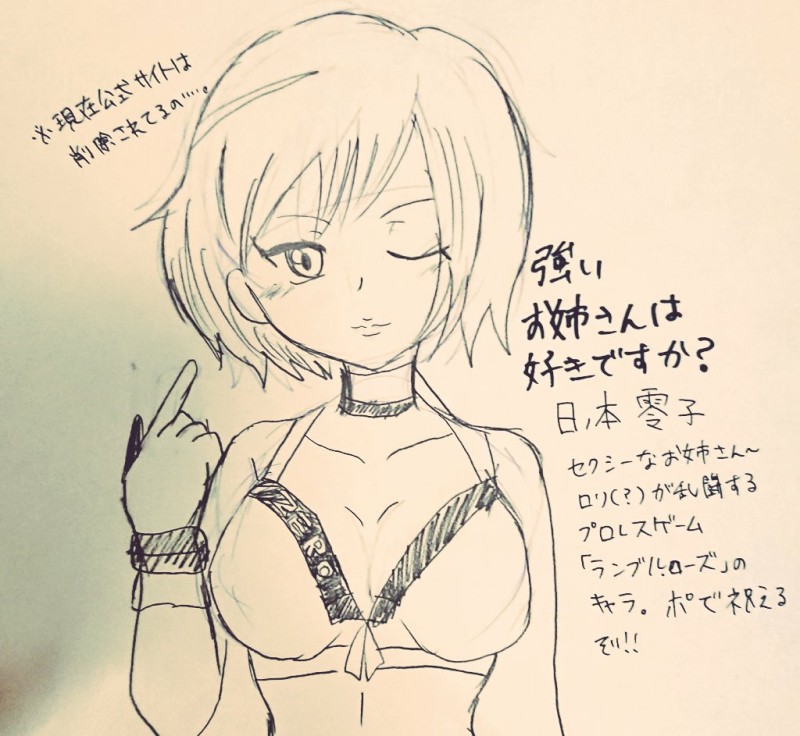 ※現在公式サイトは
削除されてるの…。
強い
お姉さんは
好きですか?
日ノ本 零子
セクシーなお姉さん〜
ロリ(?)が乱闘する
プロレスゲーム
「ランブルローズ」の
キャラ。ポで祝える
ぞ!!
ZERO